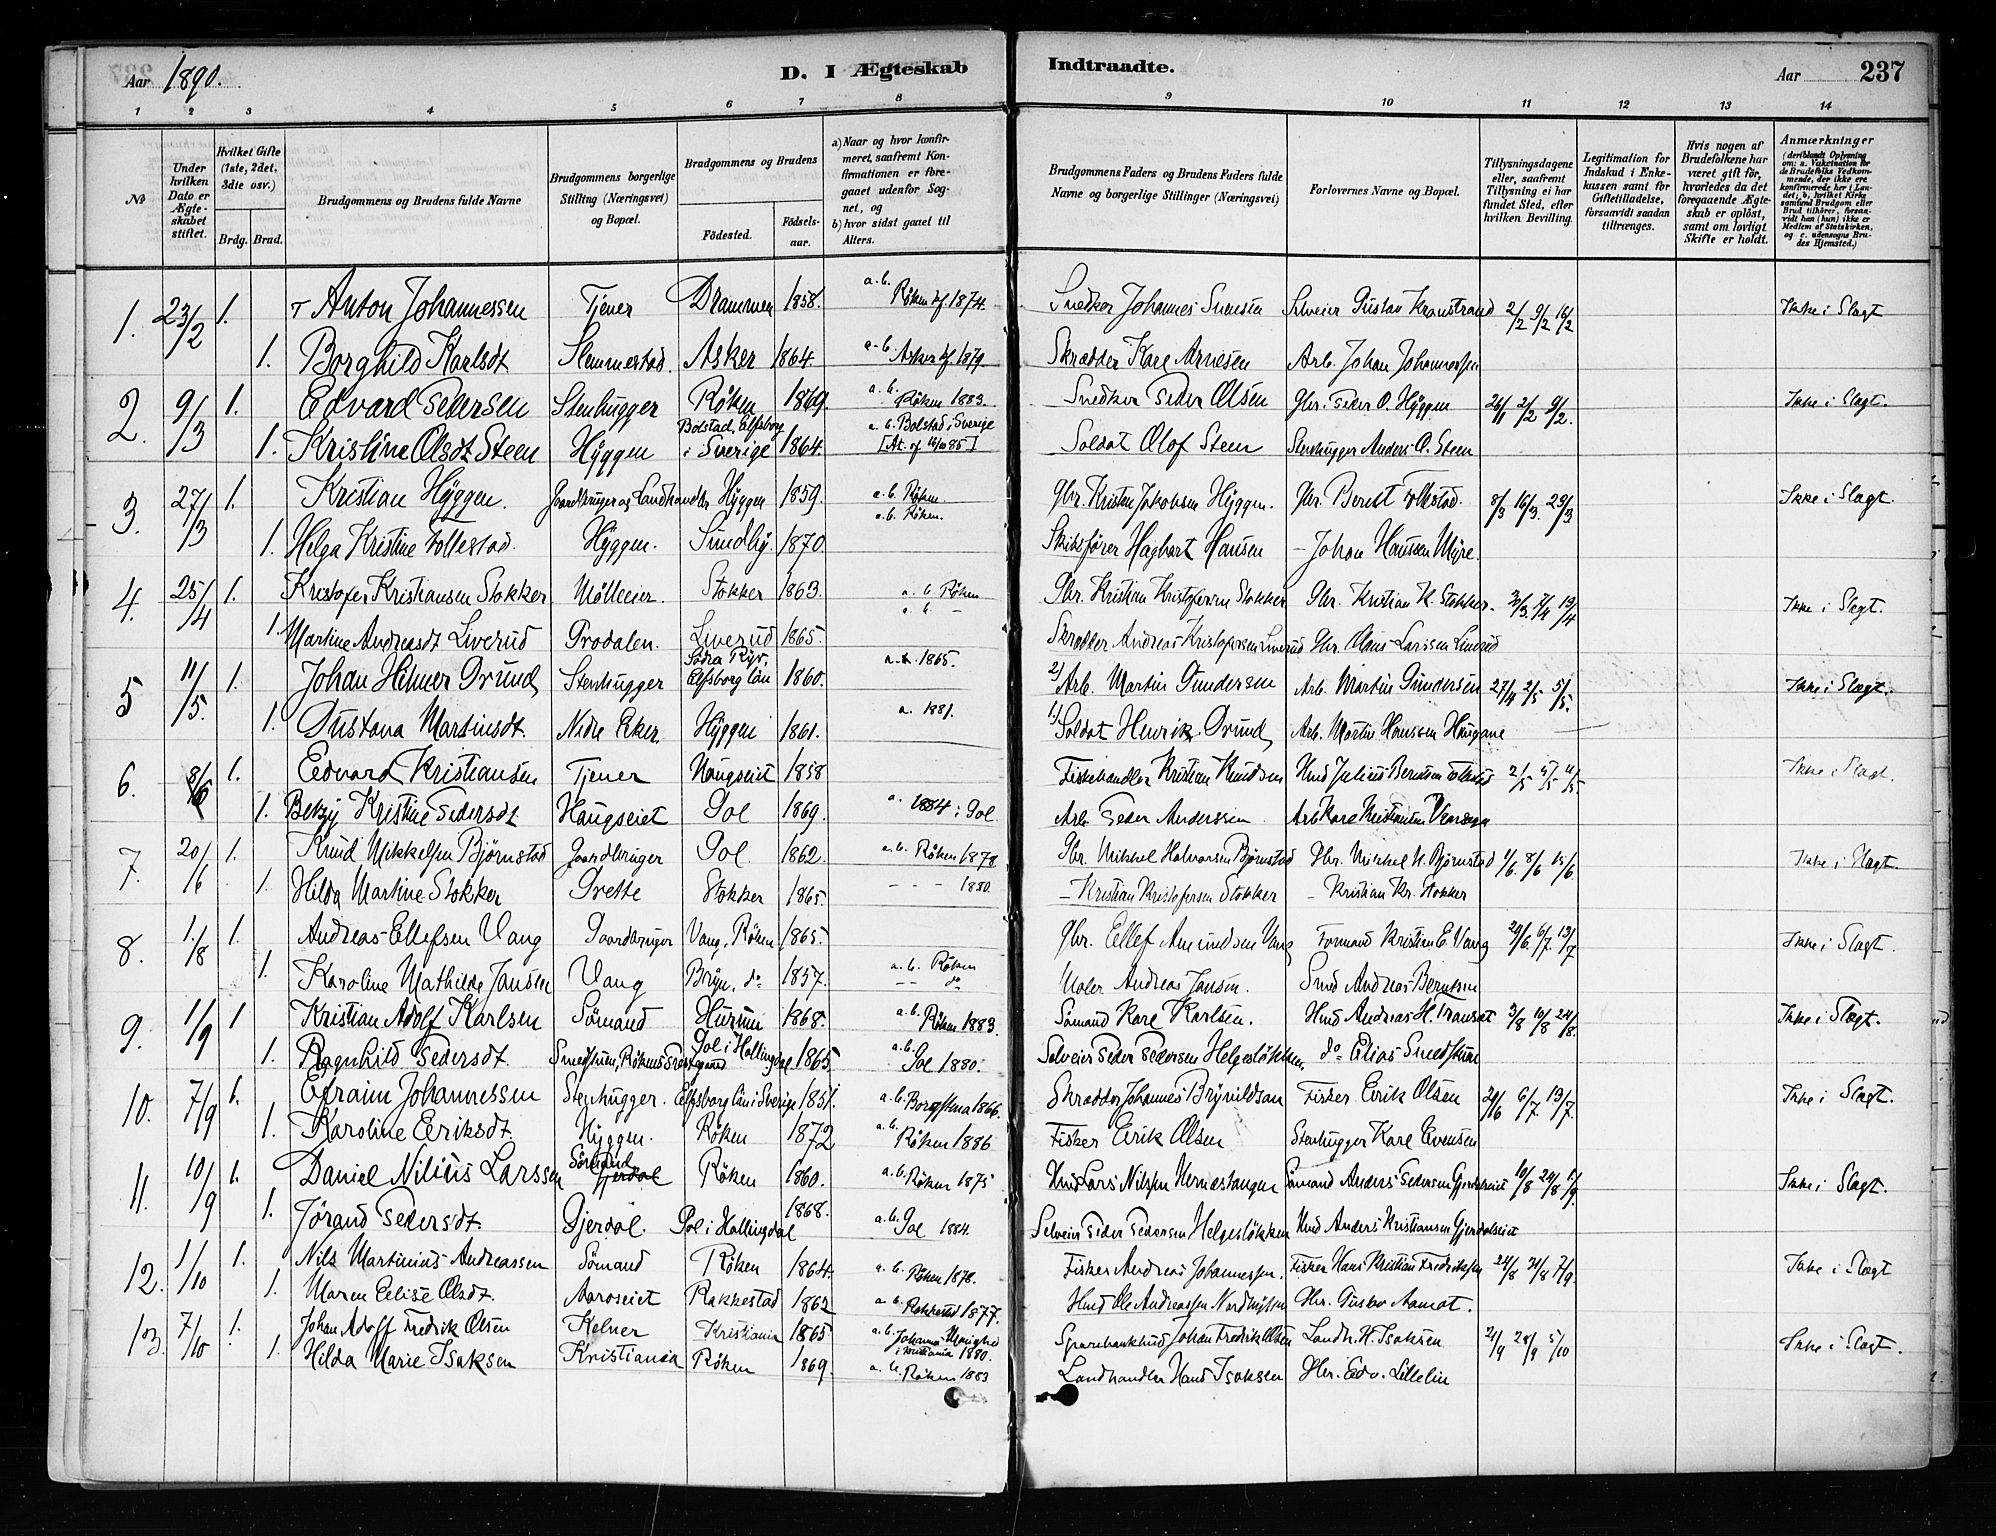 Aar 1890.
D. I Ægteskab Indtraadte.
Aar 237
1 2 3 4 5 6 7 8 9 10 11 12 13 14
No
Under hvilken Dato er Ægteskabet stiftet.
Hvilket Gifte (1ste, 2det, 3die osv.)
Brdg. Brud.
Brudgommens og Brudens fulde Navne
Brudgommens borgerlige Stilling (Næringsvei) og Bopæl.
Brudgommens og Brudens
Fødested. Fødsels-aar.
a) Naar og hvor konfirmeret, saafremt Konfirmationen er foregaaet udenfor Sognet, og b) hvor sidst gaaet til Alters.
Brudgommens Faders og Brudens Faders fulde Navne og borgerlige Stillinger (Næringsvei)
Forlovernes Navne og Bopæl.
Tillysningsdagene eller, saafremt Tillysning ei har fundet Sted, efter hvilken Bevilling.
Legitimation for Indskud i Enkekassen samt for Giftetilladelse, forsaavidt saadan tiltrænges.
Hvis nogen af Brudefolkene har været gift før, hvorledes da det foregaaende Ægteskab er opløst, samt om lovligt Skifte er holdt.
Anmærkninger
(deriblandt Oplysning om: a. Vakcination for de Brudefolks Vedkommende, der ikke ere konfirmerede her i Landet; b. hvilket Kirkesamfund Brudgom eller Brud tilhører, forsaavidt han (hun) ikke er Medlem af Statskirken, og c. udensogns Brudes Hjemsted.)
1. 23/2 1. Anton Johannessen Tjener Drammen 1858. a. b. Røken 1874. Snedker Johannes Svensen Selveier Gustav Kronstrand 2/2 9/2 16/2 Ikke i Slægt
1. Borghild Karlsdt Slemmestad. Asker 1864. a. b. Asker 1879. Skrædder Karl Arnesen Arb. Johan Johannessen
2. 9/3 1. Edvard Pedersen Stenhugger Røken 1869. a. b. Røken 1883. Snedker Peder Olsen Gbr. Peder O. Hyggen 26/1 2/2 9/2. Ikke i Slægt.
1. Kristine Olsdt Steen Hyggen Bolstad, Elfsborg i Sverige 1864. a. b. Bolstad i Sverige Soldat Olof Steen Stenhugger Anders O. Steen
3. 27/3 1. Kristian Hyggen. Gaardbruger og Landhandler Hyggen 1859. a. b. Røken Gbr. Kristen Jakobsen Hyggen. Gbr. Berndt Follestad. 8/3 16/3. 23/3 Ikke i Slægt.
1. Helga Kristine Follestad. Hyggen. Sundby. 1870 a. b. Røken. Skibsfører Hagbart Hansen – Johan Hansen Myre.
4. 25/4 1. Kristofer Kristiansen Stokker. Mølleeier. Stokker 1863. a. b. Røken Gbr. Kristian Kristofersen Stokker Gbr. Kristian K. Stokker. Ikke i Slægt.
1. Martine Andreasdt Liverud Prodalen. Liverud 1865. a. b. – Skrædder Andreas Kristofersen Liverud Gbr. Claus Larssen Liverud
5 11/5. 1. Johan Helmer Grund Stenhugger Södra Ryr. Elfsborg län 1860. 1865. 2) Arb. Martin Gundersen Arb. Martin Gundersen 27/4 2/5 5/5. Ikke i Slægt.
1. Gustava Martinsdt. Nedre Eker. Hyggen 1861. a. 1881. 1) Soldat Henrik Grund Arb. Martin Hanssen Haugane
6. 8/6 1. Edvard Kristiansen Tjener Haugseiet 1858 Fiskehandler Kristian Knudsen Hmd Julius Berntsen Ikke i Slægt.
1. Betzy Kristine Pedersdt. Haugseiet Gol 1869. a. 1884 i Gol Arb. Peder Anderssen Arb Karl Kristiansen
7. 20/6 1. Knud Mikkelsen Bjørnstad Gaardbruger Gol. 1862. a. b. Røken 1878 Gbr. Mikkel Halvorsen Bjørnstad Gbr. Mikkel H. Bjørnstad 1/6. 8/6 15/6. Ikke i Slægt
1. Hilda Martine Stokker Grette Stokker 1865. – – – 1880. – Kristian Kristofersen Stokker – Kristian Kr. Stokker
8. 1/8 1. Andreas Ellefsen Vang Gaardbruger Vang, Røken 1865. Gbr. Ellef Amundsen Vang Formand Kristian E. Vang 29/6. 6/7. 13/7 Ikke i Slægt.
1. Karoline Mathilde Jansen Vang Bryn, do 1857. a. b. Røken do Maler Andreas Jansen. Smed Andreas Berntsen
9. 1/9 1 Kristian Adolf Karlsen Sømand Hurum 1868. a. b. Røken 1883. Sømand Karl Karlsen. Hmd Andreas H. 3/8 10/8 24/8. Ikke i Slægt.
1. Ragnhild Pedersdt. Gol i Hallingdal 1865. a. b. Gol 1880. Selveier Peder Pedersen Helgesløkken, do Elias
10. 7/9 1. Efraim Johannessen Stenhugger. Elfsborg län i Sverige 1851. a. b. 1866. Skrædder Johannes Brynildsen Fisker Eirik Olsen 29/6 6/7 13/7. Ikke i Slægt.
1. Karoline Eriksdt. Hyggen. Røken 1872 a. b. Røken 1886 Fisker Eirik Olsen Stenhugger Karl Evensen
11. 10/9 1. Daniel Nilius Larssen Sømand Røken 1860. a. b. Røken 1875 Hmd Lars Nilssen Hernestangen Sømand Anders Pedersen Ikke i Slægt.
1. Jørand Pedersdt. Gjerdal. Gol i Hallingdal 1868. a. b. Gol 1884. Selveier Peder Pedersen Helgesløkken Hmd Anders Kristiansen Gjerdalseiet
12. 1/10 1. Nils Martinius Andreassen Sømand Røken 1864. a. b. Røken 1878. Fisker Andreas Johannessen. Fisker Hans Kristian Fredriksen 24/8 31/8 7/9. Ikke i Slægt
1. Maren Elise Olsdt. Aaroseiet Rakkestad 1862 a. b. Rakkestad 1877. Hmd Ole Andreassen Gbr. Gustav Aamot.
13. 7/10 1. Johan Adolf Fredrik Olsen Kelner Kristiania 1865 a. b. Johannes Menighed i Kristiania 1880. Johan Fredrik Olsen Landh. H. Isaksen 21/9 28/9 5/10 Ikke i Slægt.
1. Hilda Marie Isaksen Kristiania Røken 1869. a. b. Røken 1883 Landhandler Hans Isaksen Gbr. Edv. Lillelin